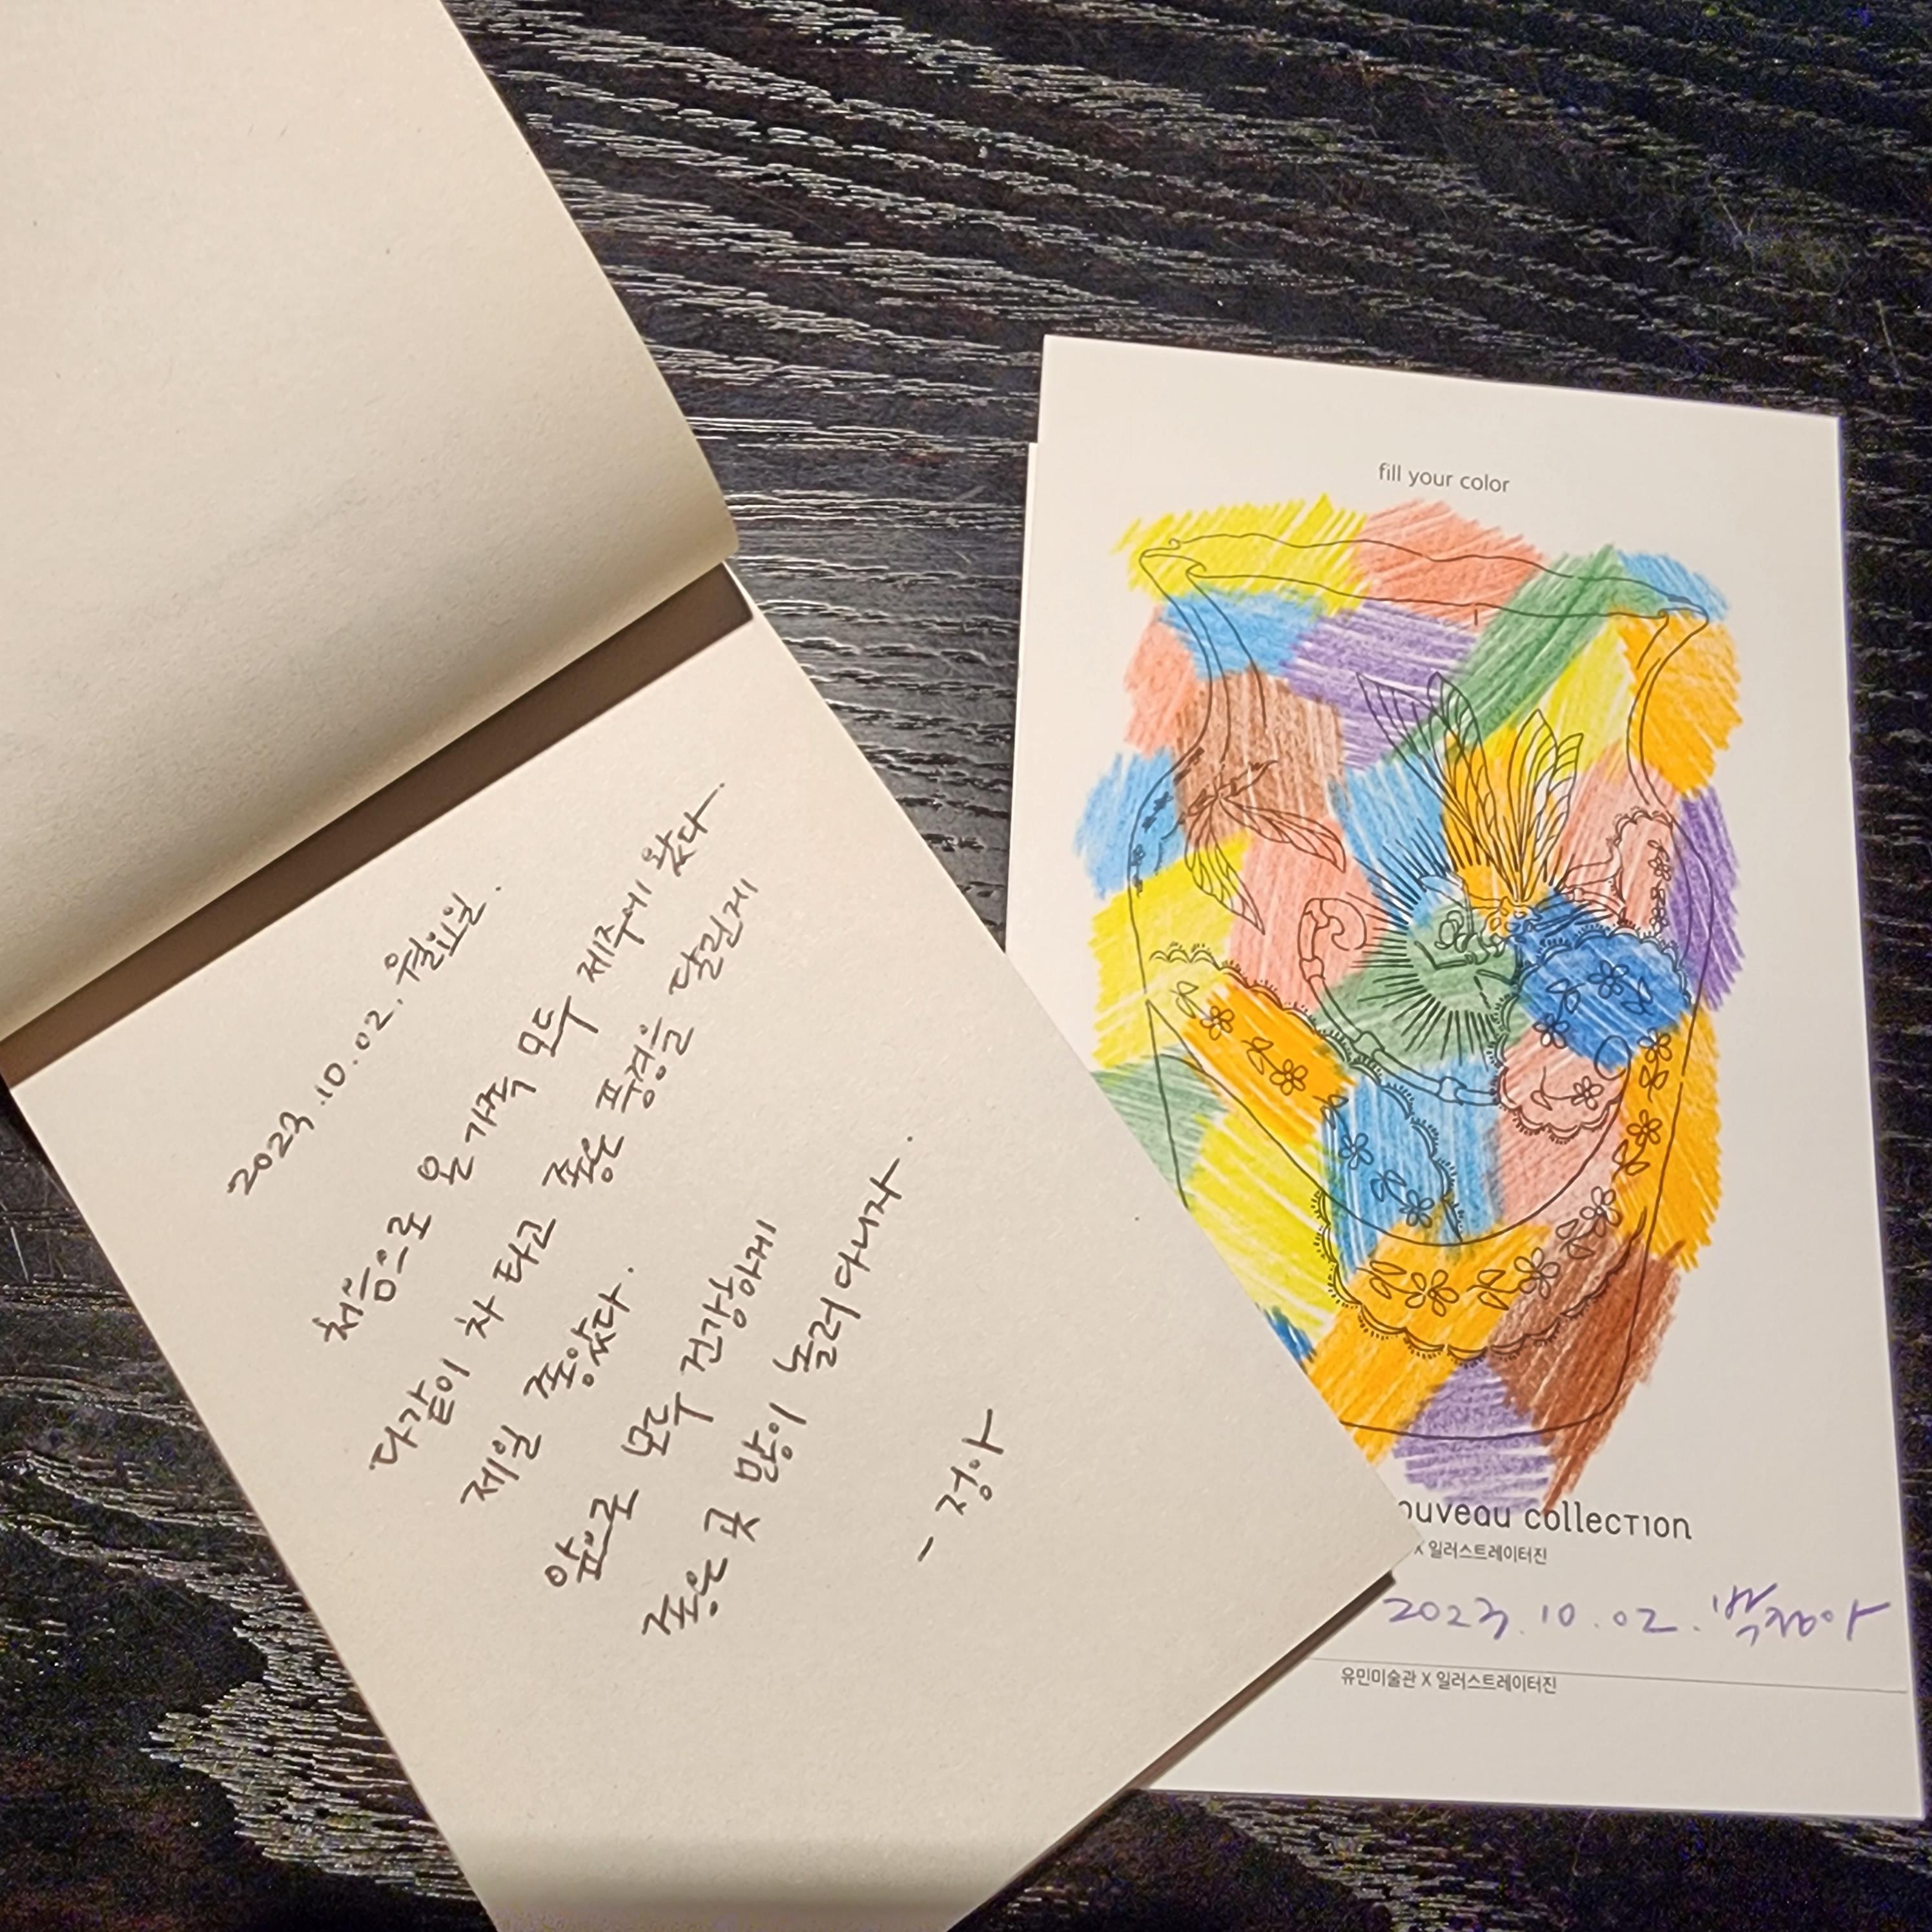 2023.10.02. 월요일.
처음으로 온 가족 모두 제주에 왔다.
다같이 차 타고 좋은 풍경을 달린게
제일 좋았다.
앞으로 모두 건강하게
좋은 곳 많이 놀러다니자.
- 정아
fill your color
ouveau collection
x 일러스트레이터진
2023.10.02. 박정아
유민미술관 X 일러스트레이터진